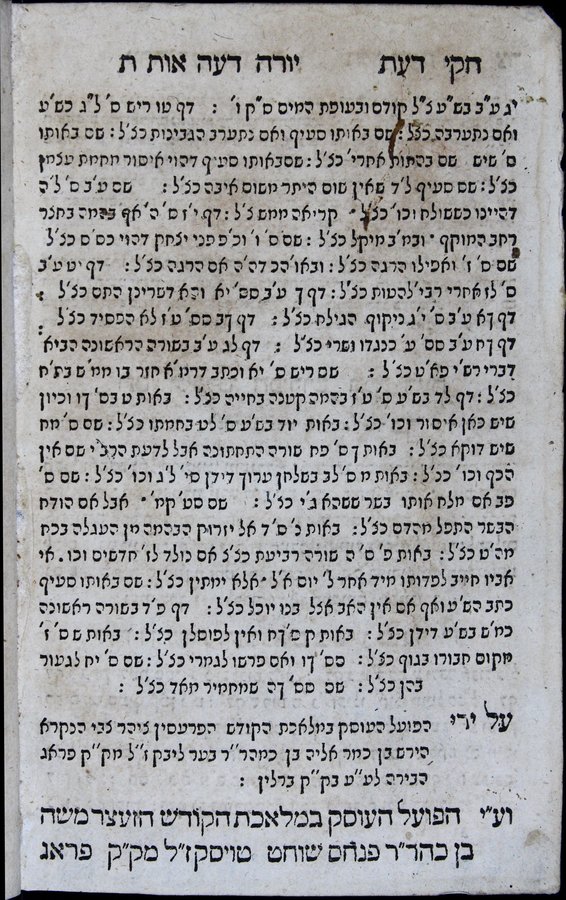 חקי דעת יורה דעה אות ת
יג ע"ב בש"ע צ"ל קודם ובעופת המים ס"ק ו' : דף טו ריש ס' ל"ג כש"ע
ואם נתערבה כצ"ל : שם באותו סעיף ואם נתערב הגבינות כצ"ל : שם באותו
ס' שיש שם בהתות אחרי' כצ"ל : שם באותו סעיף דהוי איסור מחמת עצמן
כצ"ל : שם סעיף ל"ד שאין שום היתר משום איבה כצ"ל : שם ע"ב ס' ל"ה
דהיינו כששולח וכו' כצ"ל קריאה ממש צ"ל : דף י"ז ס' ה' אף בהמה בחצר
רחב המוקף ובמ"ב מיקל כצ"ל : שם ס' ו' וכ"פ פני יצחק דהוי כס"ס כצ"ל
שם ס' ז' ואפילו הרגה כצ"ל : ובאו"הכ דה"ה אם הרגה כצ"ל : דף יט ע"ב
ס' לז אחרי רבי' להטות כצ"ל : דף ך ע"ב סס' יא והא דשרינן התם כצ"ל
דף ךא ע"ב ס' י"ג ניקוף הגילח כצ"ל : דף ךב סס' ע"ז לא הפסיד כצ"ל
דף ךח ע"ב סס' ע' כנגדו ושרי כצ"ל : דף לג ע"ב בשורה הראשונה הביא
דברי רש"י פא"ט כצ"ל : שם ריש ס' יא וכתב דרמ"א חזר בו ממ"ש בת"ח
כצ"ל : דף לד בש"ע ס' ע"ז בהמה קטנה בחייה כצ"ל : באות ט בס' ךו וכיון
שיש כאן איסור וכו' כצ"ל : באות יוד בש"ע ס' לט בחמתו כצ"ל : שם ס' מח
שיש דוקא כצ"ל : באות ך ס' פח שורה התחתונה אבל לדעת הרב"י שם אין
הכף וכו' כצ"ל : באות מ ס' לב בשלחן ערוך דידן סי' ל"ג וכו' כצ"ל : שם ס'
פב אם מלח אותו בשר ששהא ג"י כצ"ל : שם סט' קמ' אבל אם הודח
הבשר התפל מהדם כצ"ל : באות נ ס' ד אל יזרוק הבהמה מן העגלה בכח
מה"ט כצ"ל : באות פ ס' ה שורה רביעת כצ"צ אם נולד לז' חדשים וכו' אי
אביו חייב לפדותו מיד אחר ל' יום א"ל אלא ימתין כצ"ל : שם באותו סעיף
כתב הש"ע ואף אם אין האב אצל בנו יוכל כצ"ל : דף פ"ד בשורה ראשונה
כמ"ש בש"ע דידן כצ"ל : באות ק ס' ךח ואין לפוסלן כצ"ל : באות ש ס' ז'
מקום חבורו בגוף כצ"ל : סס' ךו ואם פרשו לגמרי כצ"ל : שם ס' יח לגעור
בהן כצ"ל : שם סס' ךה שמחמיר מאד כצ"ל :
על ידי הפועל העוסק במלאכת הקודש הפרעסין ציהר צבי הנקרא
הירש בן כמר אליה בן כמהר"ר בער ליבק ז"ל מק"ק פראג
הבירה לע"ע בק"ק ברלין :
וע"י הפועל העוסק במלאכת הקודש הזעצר משה
בן כהר"ר פנחס שוחט טויסק ז"ל מק"ק פראג